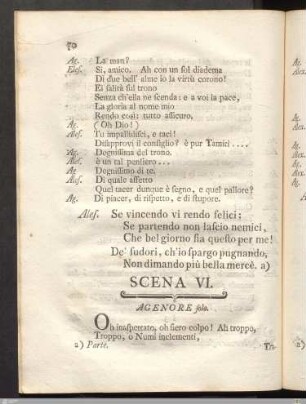 50
Ag. La man?
Ales. Sì, amico. Ah con un sol diadema
Di due bell' alme io la virtù corono!
Ei salirà sul trono
Senza ch'ella ne scenda: e a voi la pace,
La gloria al nome mio
Rendo così: tutto assicuro,
Ag. (Oh Dio!)
Ales. Tu impallidisci, e taci!
Disapprovi il consiglio? è pur Tamiri ....
Ag. Degnissima del trono.
Ales. è un tal pensiero ...
Ag. Degnissimo di te.
Ales. Di quale affetto
Quel tacer dunque è segno, e quel pallore?
Ag. Di piacer, di rispetto, e di stupore.
Ales. Se vincendo vi rendo felici:
Se partendo non lascio nemici,
Che bel giorno fia questo per me!
De' sudori, ch'io spargo pugnando,
Non dimando più bella mercè. a)
SCENA VI.
AGENORE solo.
Oh inaspettato, oh fiero colpo! Ah troppo,
Troppo, o Numi inclementi,
a) Parte.